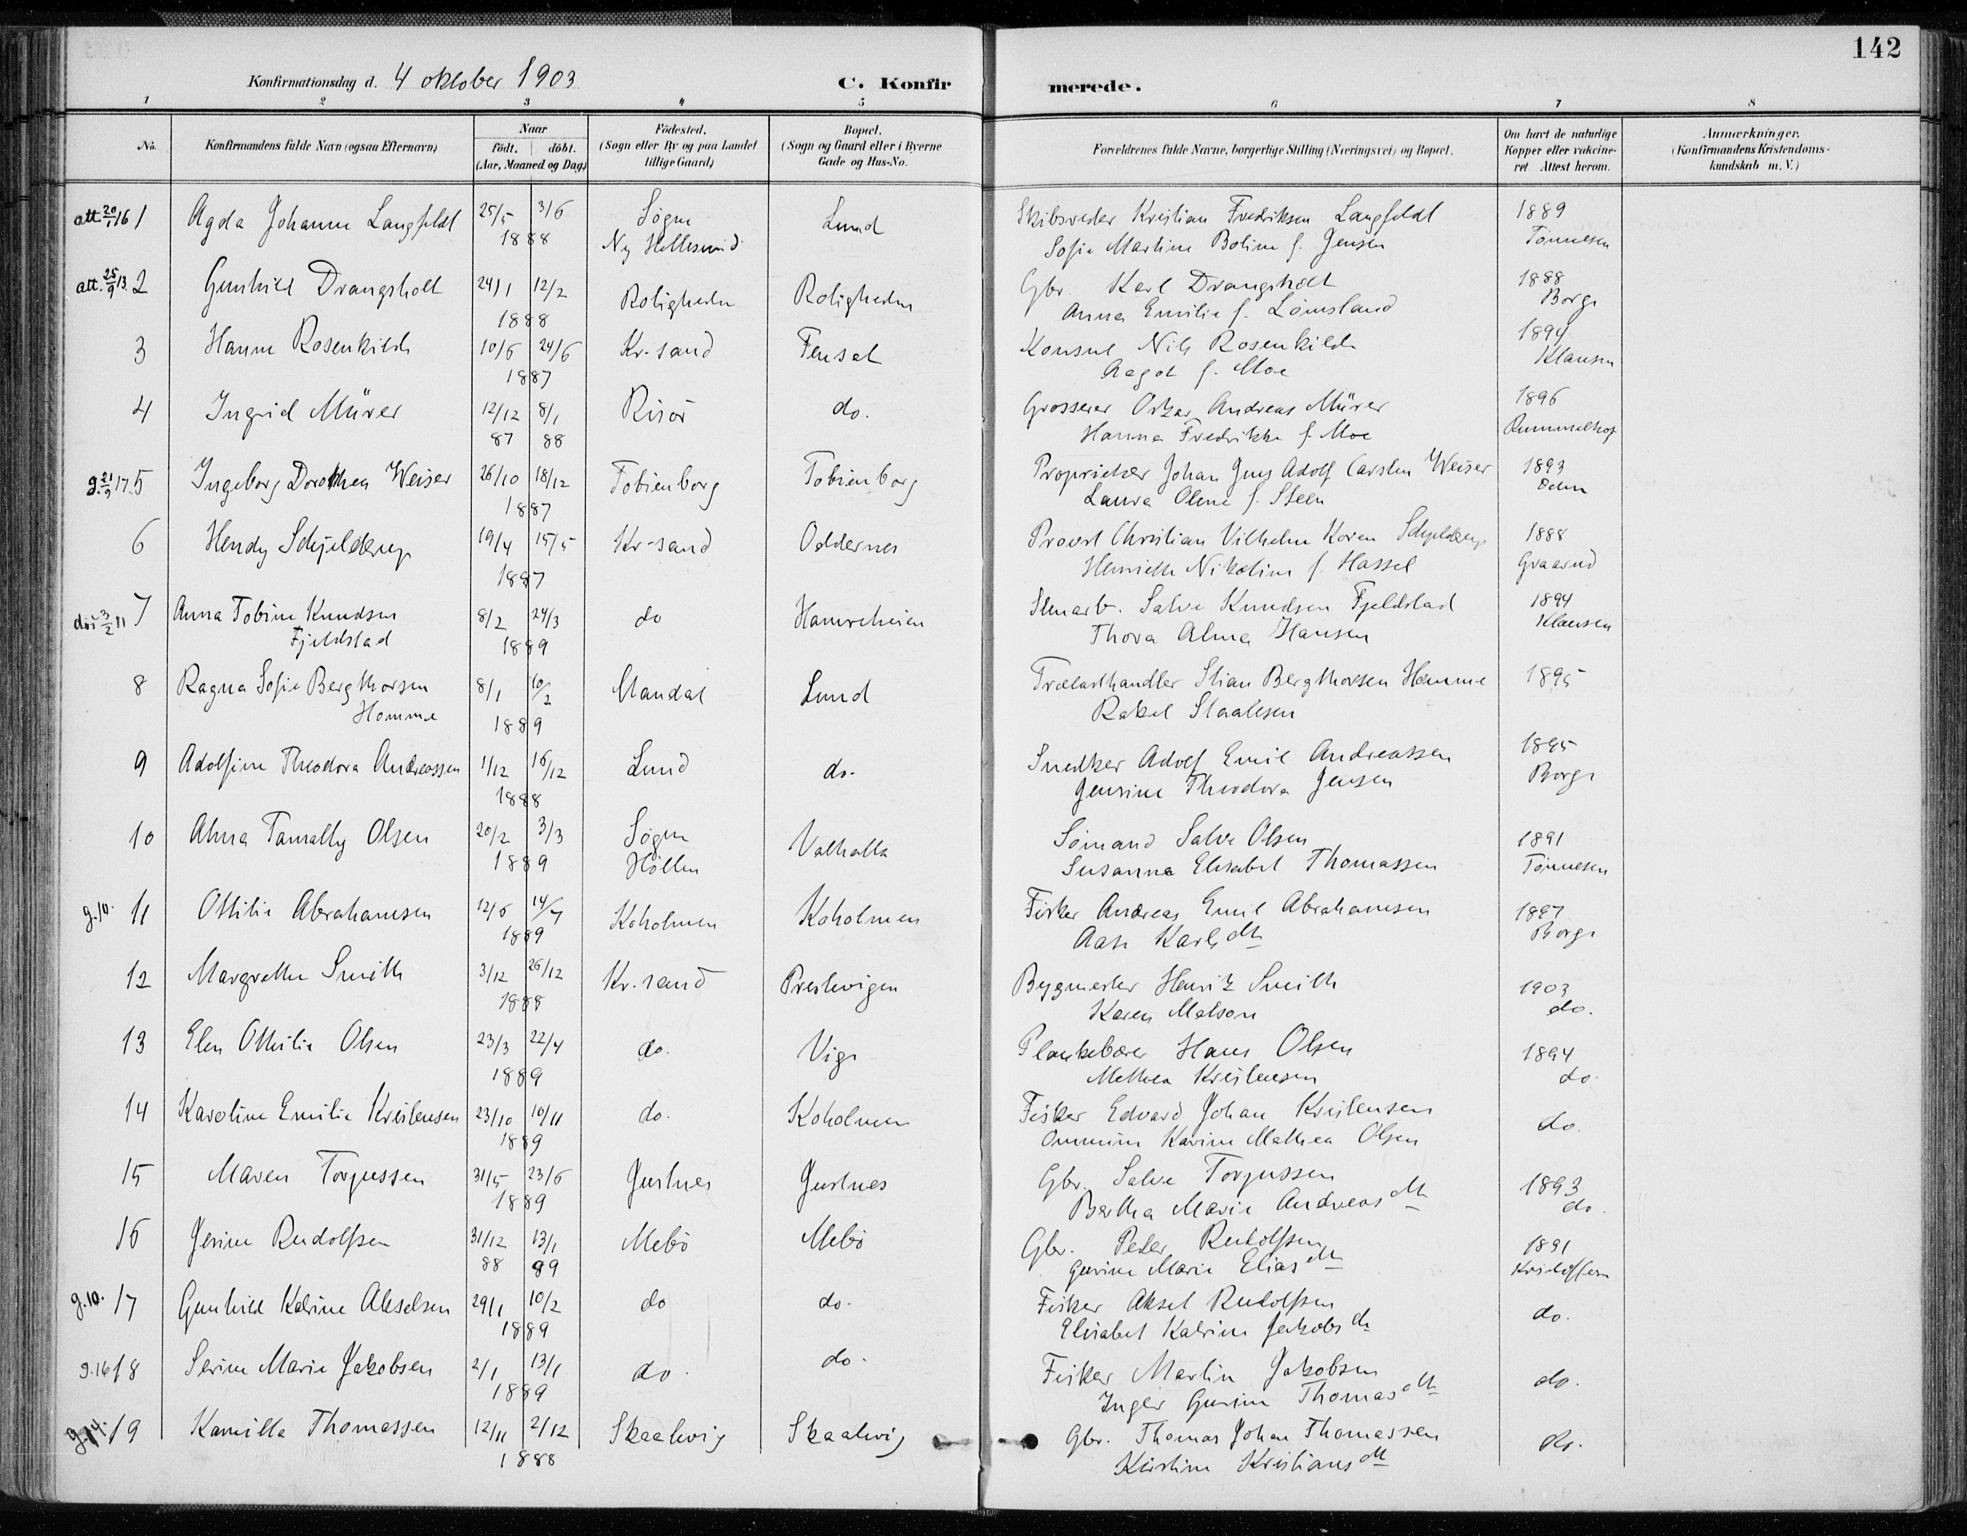 142
Konfirmationsdag d. 4 oktober 1903 C. Konfirmerede.
1 2 3 4 5 6 7 8
No. Konfirmandens fulde Navn (ogsaa Efternavn) Naar födt. döbt. (Aar, Maaned og Dag) Födested. (Sogn eller By og paa Landet tillige Gaard) Bopæl. (Sogn og Gaard eller i Byerne Gade og Hus-No. Forældrenes fulde Navne, borgerlige Stilling (Næringsvei) og Bopæl. Om havt de naturlige Kopper eller vakcineret Attest herom. Anmærkninger. (Konfirmandens Kristendomskundskab m. V.)
att. 20/1 16 1 Agda Johanne Langfeldt 25/5 3/6 Søgne Lund Skibsreder Kristian Fredriksen Langfeldt 1889
1888 Ny Hellesund Sofie Martine Boline f. Jensen Tønnesen
att. 25/9 13. 2 Gunhild Drangsholt 24/1 12/2 Roligheden Roligheden Gbr. Karl Drangsholt 1888
1888 Anna Emilie f. Lømsland Borge
3 Hanne Rosenkilde 10/6 24/6 Kr-sand Kr. Konsul Nils Rosenkilde 1894
1887 Aagot f. Moe Klausen
4 Ingrid Mürer 12/12 8/1 Risör do. Grosserer Oskar Andreas Mürer 1896
87 88 Hanna Fredrikke f. Moe Rummelhof
g. 21/9 17. 5 Ingeborg Dorothea Weiser 26/10 18/12 Tobienborg Tobienborg Proprietær Johan Jens Adolf Carsten Weiser 1893
1887 Laura Olene f. Steen
6 Hendy Schjelderup 19/4 15/5 Kr-sand Oddernes Provst Christian Vilhelm Koren Schjelderup 1888
1887 Henriette Nikoline f. Hassel Graarud
död 3/2 11 7 Anna Tobine Knudsen 8/2 24/3 do Hamreheien Stenarb. Salve Knudsen Fjeldstad 1894
Fjeldstad 1889 Thora Alma Hansen Klausen
8 Ragna Sofie Bergthorsen 8/1 10/2 Mandal Lund Trælasthandler Stian Bergthorsen Homme 1895
Homme 1889 Rakel Staalesen
9 Adolfine Theodora Andreassen 1/12 16/12 Lund do. Snedker Adolf Emil Andreassen 1895
1888 Jensine Theodora Jensen Borge
10 Alma Tomally Olsen 20/2 3/3 Søgne Valhalla Sømand Salve Olsen 1891
1889 Høllen Susanna Elisabet Thomassen Tønnesen
g. 10. 11 Ottilie Abrahamsen 12/6 14/7 Koholmen Koholmen Fisker Andreas Emil Abrahamsen 1897
1889 Aase Karls dtr Borge
12 Margrethe Smith 3/12 26/12 Kr. sand Prestvigen Bygmester Henrik Smith 1903
1888 Karen Matson do.
13 Elen Othilie Olsen 23/3 22/4 do. Vige Plankebærer Hans Olsen 1894
1889 Methea Kristensen do.
14 Karoline Emilie Kristensen 23/10 10/11 do. Koholmen Fisker Edvard Johan Kristensen do.
1889 Ommine Karine Mathea Olsen
15 Maren Torjussen 31/5 23/6 Justnes Justnes Gbr. Salve Torjussen 1893
1889 Bertha Marie Andreas dtr do.
16 Jesine Rudolfsen 31/12 13/1 Mebö Mebö Gbr. Peder Rudolfsen 1891
88 89 Gurine Marie Elias dtr Kristoffersen
g. 10. 17 Gunhild Katrine Akselsen 29/1 10/2 do do. Fisker Aksel Rudolfsen do.
1889 Elisabet Katrine Jakobs dtr
g. 16 18 Serine Marie Jakobsen 2/1 13/1 do. do. Fisker Martin Jakobsen do.
1889 Inger Gurine Thomas dtr
g. 14. 19 Kamilla Thomassen 12/11 2/12 Skaalevig Skaalevig Gbr. Thomas Johan Thomassen do.
1888 Kirstine Kristians dtr